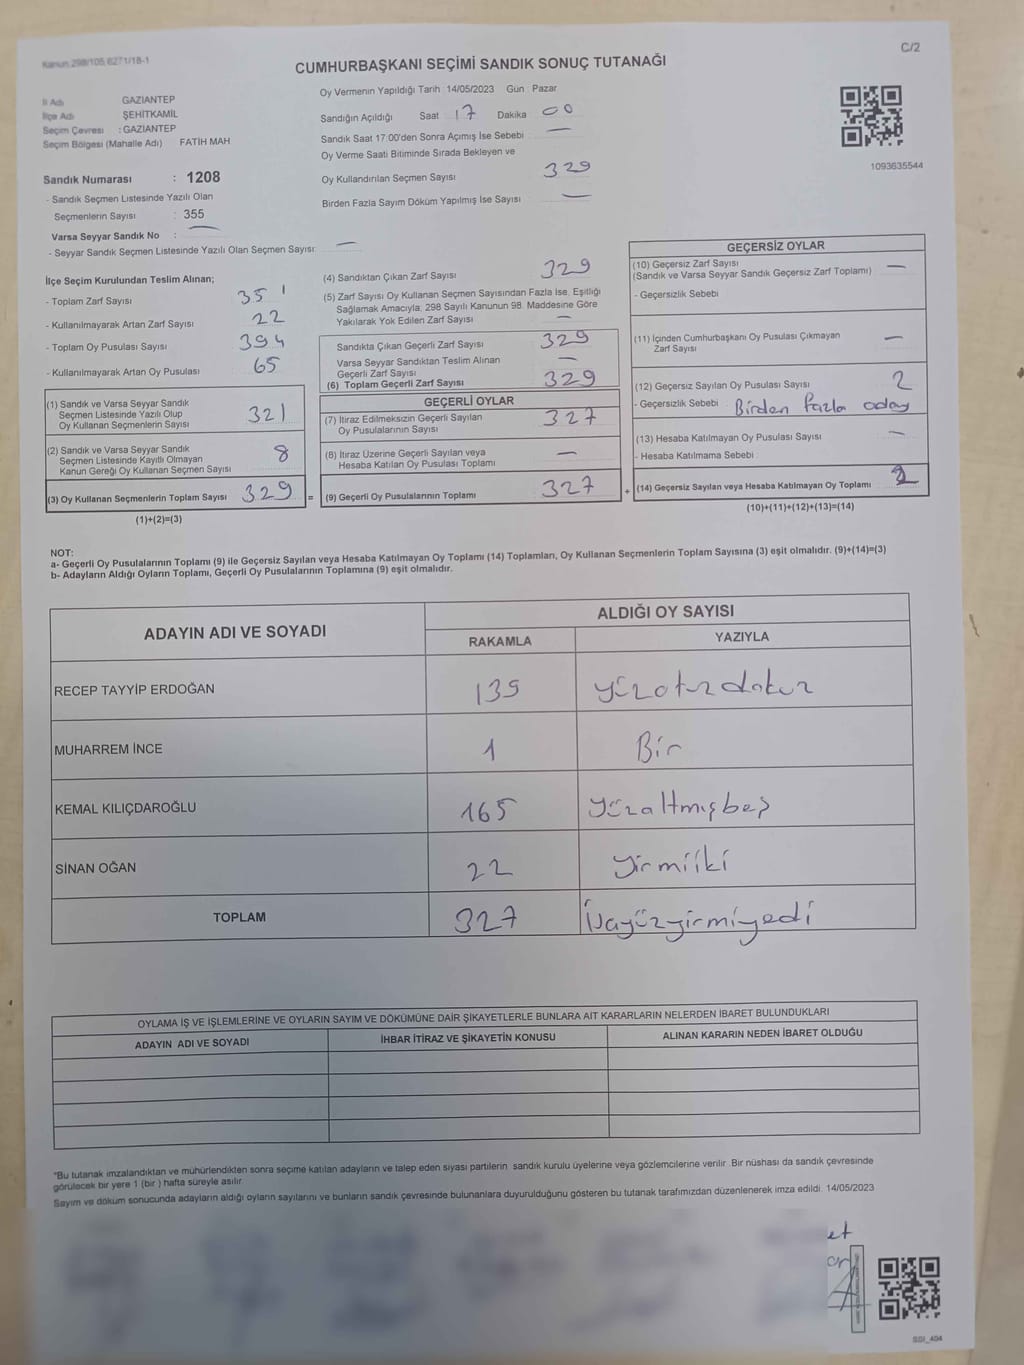 Kanun 298/105,6271/18-1
C/2
CUMHURBAŞKANI SEÇİMİ SANDIK SONUÇ TUTANAĞI
İl Adı GAZİANTEP
İlçe Adı ŞEHİTKAMİL
Seçim Çevresi : GAZİANTEP
Seçim Bölgesi (Mahalle Adı) FATİH MAH
Sandık Numarası : 1208
- Sandık Seçmen Listesinde Yazılı Olan
Seçmenlerin Sayısı : 355
Varsa Seyyar Sandık No : —
- Seyyar Sandık Seçmen Listesinde Yazılı Olan Seçmen Sayısı: —
Oy Vermenin Yapıldığı Tarih : 14/05/2023 Gün : Pazar
Sandığın Açıldığı Saat 17 Dakika 00
Sandık Saat 17:00'den Sonra Açımış İse Sebebi —
Oy Verme Saati Bitiminde Sırada Bekleyen ve
Oy Kullandırılan Seçmen Sayısı 329
Birden Fazla Sayım Döküm Yapılmış İse Sayısı —
1093635544
İlçe Seçim Kurulundan Teslim Alınan;
- Toplam Zarf Sayısı 351
- Kullanılmayarak Artan Zarf Sayısı 22
- Toplam Oy Pusulası Sayısı 394
- Kullanılmayarak Artan Oy Pusulası 65
(1) Sandık ve Varsa Seyyar Sandık
Seçmen Listesinde Yazılı Olup
Oy Kullanan Seçmenlerin Sayısı 321
(2) Sandık ve Varsa Seyyar Sandık
Seçmen Listesinde Kayıtlı Olmayan
Kanun Gereği Oy Kullanan Seçmen Sayısı 8
(3) Oy Kullanan Seçmenlerin Toplam Sayısı 329 =
(1)+(2)=(3)
(4) Sandıktan Çıkan Zarf Sayısı 329
(5) Zarf Sayısı Oy Kullanan Seçmen Sayısından Fazla İse, Eşitliği
Sağlamak Amacıyla, 298 Sayılı Kanunun 98. Maddesine Göre
Yakılarak Yok Edilen Zarf Sayısı —
Sandıkta Çıkan Geçerli Zarf Sayısı 329
Varsa Seyyar Sandıktan Teslim Alınan
Geçerli Zarf Sayısı —
(6) Toplam Geçerli Zarf Sayısı 329
GEÇERLİ OYLAR
(7) İtiraz Edilmeksizin Geçerli Sayılan
Oy Pusulalarının Sayısı 327
(8) İtiraz Üzerine Geçerli Sayılan veya
Hesaba Katılan Oy Pusulası Toplamı —
(9) Geçerli Oy Pusulalarının Toplamı 327 +
GEÇERSİZ OYLAR
(10) Geçersiz Zarf Sayısı
(Sandık ve Varsa Seyyar Sandık Geçersiz Zarf Toplamı) —
- Geçersizlik Sebebi
(11) İçinden Cumhurbaşkanı Oy Pusulası Çıkmayan
Zarf Sayısı —
(12) Geçersiz Sayılan Oy Pusulası Sayısı 2
- Geçersizlik Sebebi : Birden fazla aday
(13) Hesaba Katılmayan Oy Pusulası Sayısı —
- Hesaba Katılmama Sebebi
(14) Geçersiz Sayılan veya Hesaba Katılmayan Oy Toplamı 2
(10)+(11)+(12)+(13)=(14)
NOT:
a- Geçerli Oy Pusulalarının Toplamı (9) ile Geçersiz Sayılan veya Hesaba Katılmayan Oy Toplamı (14) Toplamları, Oy Kullanan Seçmenlerin Toplam Sayısına (3) eşit olmalıdır. (9)+(14)=(3)
b- Adayların Aldığı Oyların Toplamı, Geçerli Oy Pusulalarının Toplamına (9) eşit olmalıdır.
ADAYIN ADI VE SOYADI
ALDIĞI OY SAYISI
RAKAMLA YAZIYLA
RECEP TAYYİP ERDOĞAN 139 yüzotuzdokuz
MUHARREM İNCE 1 Bir
KEMAL KILIÇDAROĞLU 165 yüzaltmışbeş
SİNAN OĞAN 22 yirmiiki
TOPLAM 327 üçyüzyirmiyedi
OYLAMA İŞ VE İŞLEMLERİNE VE OYLARIN SAYIM VE DÖKÜMÜNE DAİR ŞİKAYETLERLE BUNLARA AİT KARARLARIN NELERDEN İBARET BULUNDUKLARI
ADAYIN ADI VE SOYADI İHBAR İTİRAZ VE ŞİKAYETİN KONUSU ALINAN KARARIN NEDEN İBARET OLDUĞU
*Bu tutanak imzalandıktan ve mühürlendikten sonra seçime katılan adayların ve talep eden siyasi partilerin sandık kurulu üyelerine veya gözlemcilerine verilir. Bir nüshası da sandık çevresinde
görülecek bir yere 1 (bir ) hafta süreyle asılır.
Sayım ve döküm sonucunda adayların aldığı oyların sayılarını ve bunların sandık çevresinde bulunanlara duyurulduğunu gösteren bu tutanak tarafımızdan düzenlenerek imza edildi. 14/05/2023
et
SSI_404